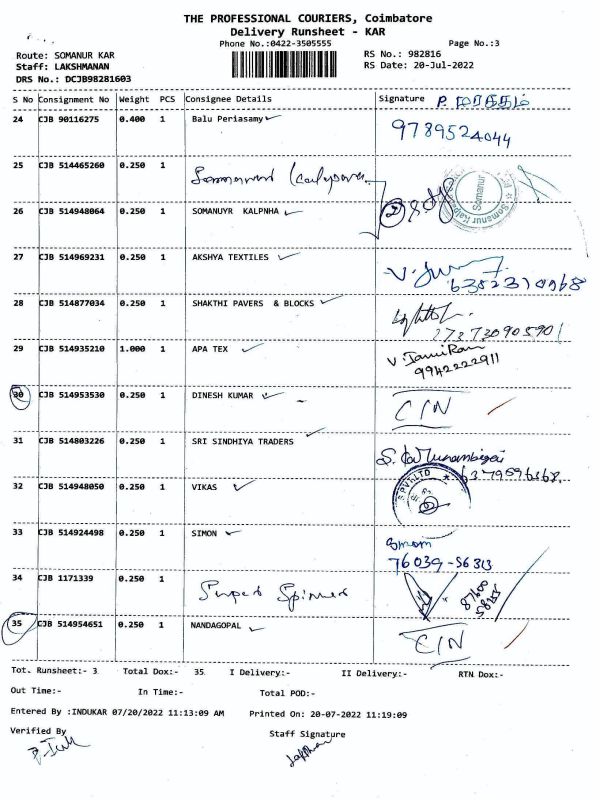 THE PROFESSIONAL COURIERS, Coimbatore
Delivery Runsheet - KAR
Phone No.:0422-3505555
Page No.:3
Route: SOMANUR KAR
RS No.: 982816
Staff: LAKSHMANAN
RS Date: 20-Jul-2022
DRS No.: DCJB98281603
S No Consignment No Weight PCS Consignee Details Signature
24 CJB 90116275 0.400 1 Balu Periasamy
9789524044
25 CJB 514465260 0.250 1
26 CJB 514948064 0.250 1 SOMANUYR KALPNHA
Somanur
27 CJB 514969231 0.250 1 AKSHYA TEXTILES
6352310968
28 CJB 514877034 0.250 1 SHAKTHI PAVERS & BLOCKS
29 CJB 514935210 1.000 1 APA TEX
9942222911
30 CJB 514953530 0.250 1 DINESH KUMAR CIN
31 CJB 514803226 0.250 1 SRI SINDHIYA TRADERS
32 CJB 514948050 0.250 1 VIKAS
33 CJB 514924498 0.250 1 SIMON
Simon
76039-56313
34 CJB 1171339 0.250 1 Super Spinner
35 CJB 514954651 0.250 1 NANDAGOPAL CIN
Tot. Runsheet:- 3 Total Dox:- 35 I Delivery:- II Delivery:- RTN Dox:-
Out Time:- In Time:- Total POD:-
Entered By :INDUKAR 07/20/2022 11:13:09 AM Printed On: 20-07-2022 11:19:09
Verified By Staff Signature